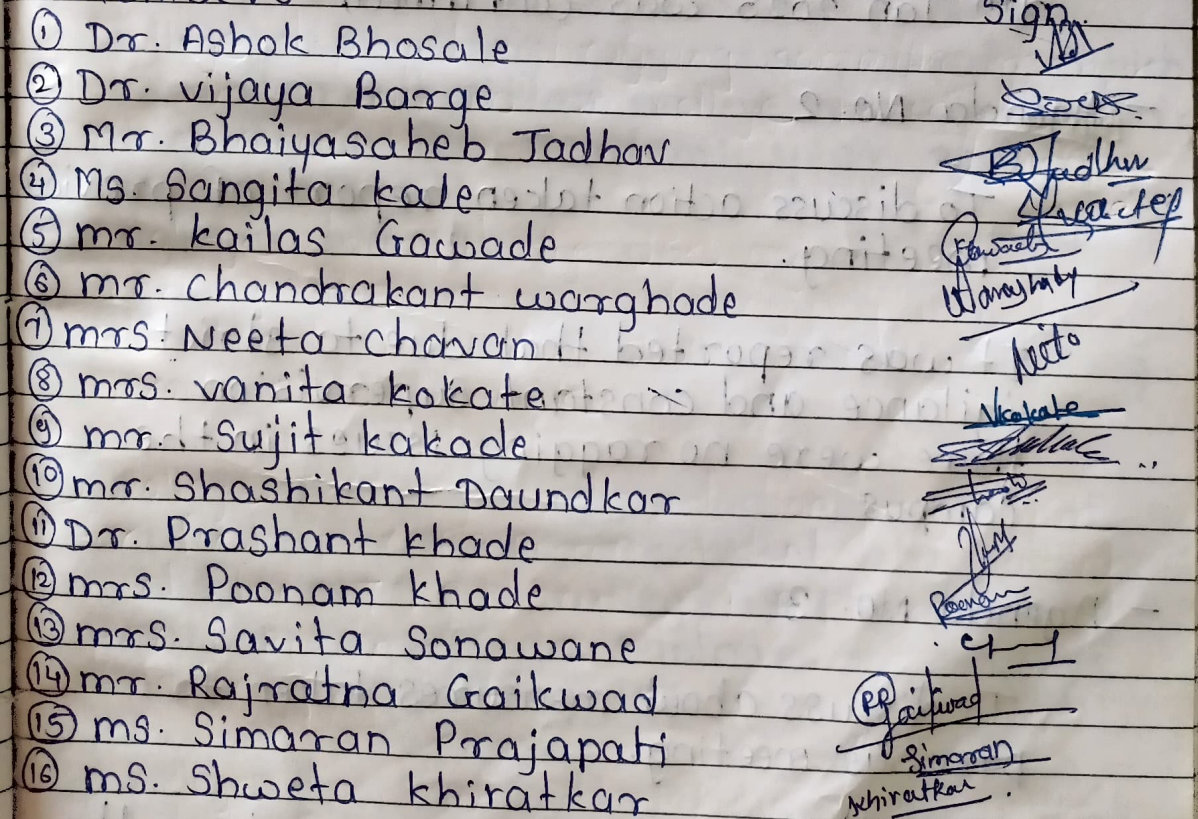 Sign.
① Dr. Ashok Bhosale
② Dr. vijaya Barge
③ Mr. Bhaiyasaheb Jadhav BJadhav
④ Ms. Sangita kale
⑤ mr. kailas Gawade
⑥ mr. chandrakant warghade
⑦ mrs. Neeta chavan Neeta
⑧ mrs. vanita kakate Vkakate
⑨ mr. Sujit kakade
⑩ mr. Shashikant Daundkar
⑪ Dr. Prashant khade
⑫ mrs. Poonam khade Poonam
⑬ mrs. Savita Sonawane
⑭ mr. Rajratna Gaikwad RRGaikwad
⑮ ms. Simaran Prajapati Simaran
⑯ ms. Shweta khiratkar skhiratkar